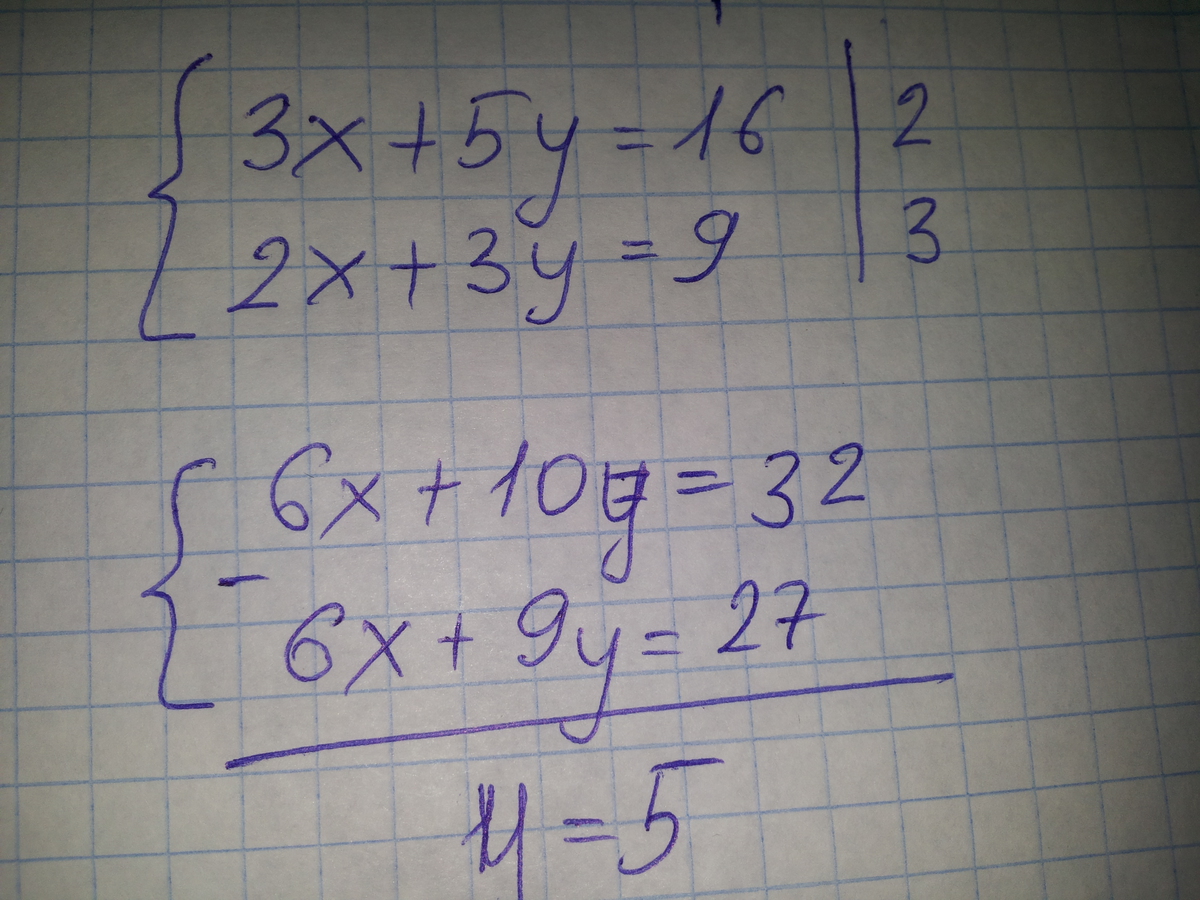 3x + 5y = 16 | 2
2x + 3y = 9 | 3
6x + 10y = 32
-
6x + 9y = 27
y = 5